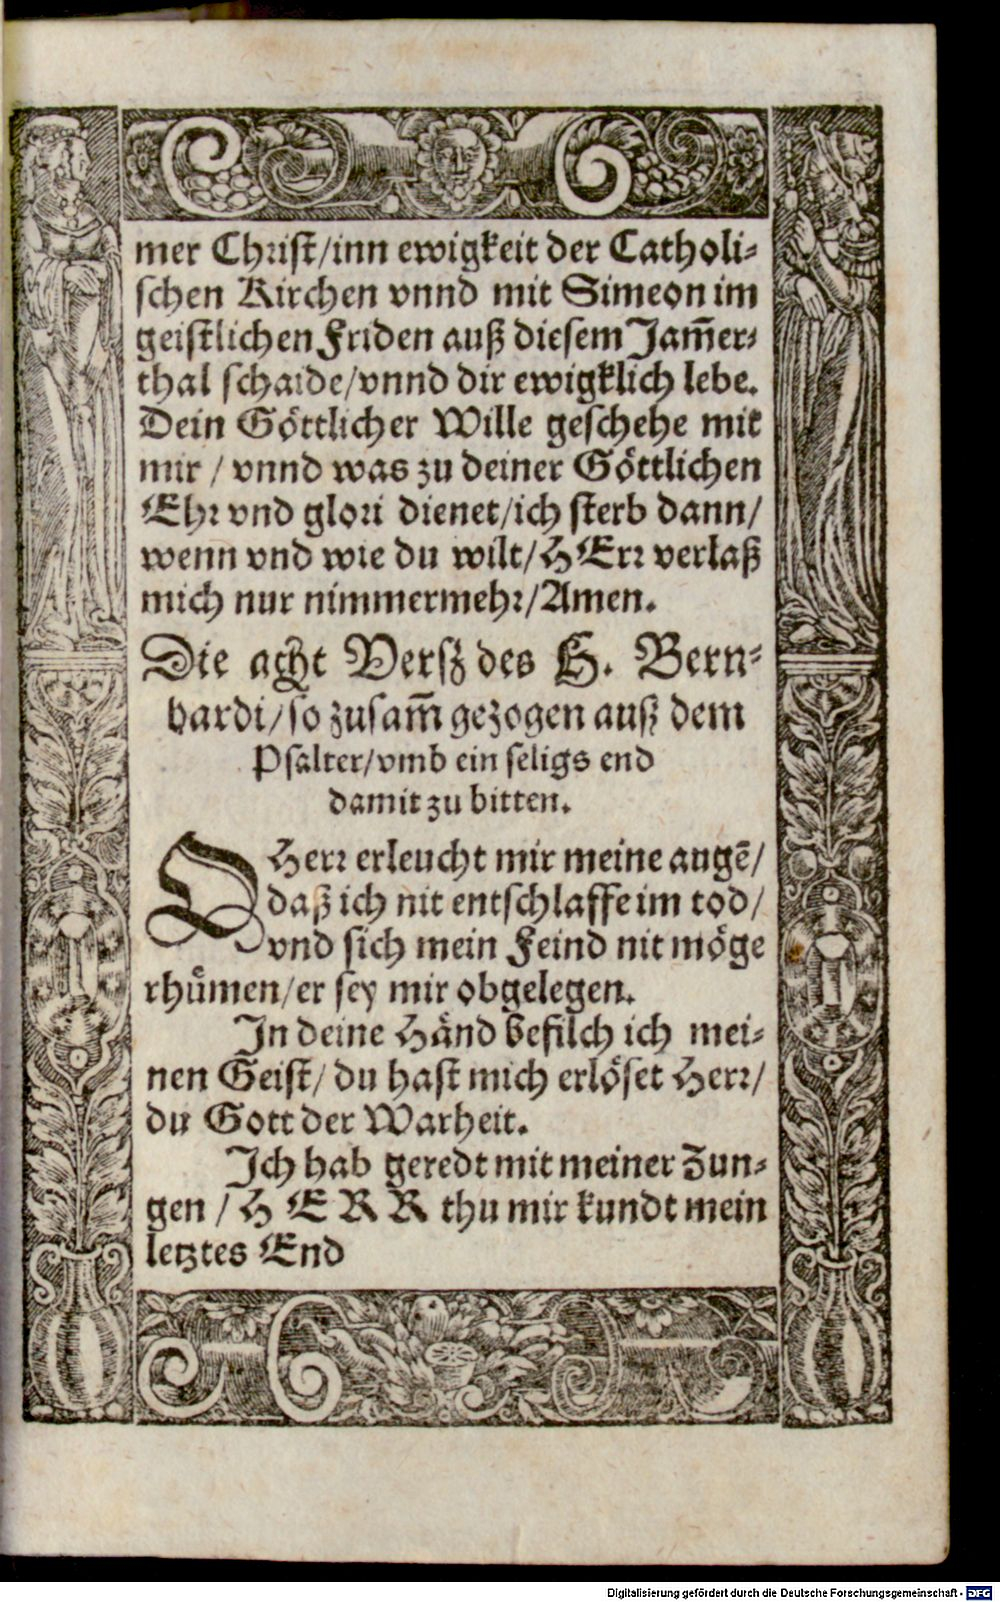 mer Christ/inn ewigkeit der Catholi-
schen Kirchen vnnd mit Simeon im
geistlichen Friden auß diesem Jam̃er-
thal schaide/vnnd dir ewigklich lebe.
Dein Göttlicher Wille geschehe mit
mir / vnnd was zu deiner Göttlichen
Ehr vnd glori dienet/ich sterb dann/
wenn vnd wie du wilt/HErr verlaß
mich nur nimmermehr/Amen.
Die acht Versz des H. Bern-
hardi/so zusam̃ gezogen ausz dem
Psalter/vmb ein seligs end
damit zu bitten.
O Herr erleucht mir meine augẽ/
daß ich nit entschlaffe im tod/
vnd sich mein Feind nit möge
rhuͤmen/er sey mir obgelegen.
In deine Händ befilch ich mei-
nen Geist/ du hast mich erlöset Herr/
du Gott der Warheit.
Ich hab geredt mit meiner Zun-
gen / HERR thu mir kundt mein
letztes End
Digitalisierung gefördert durch die Deutsche Forschungsgemeinschaft - DFG